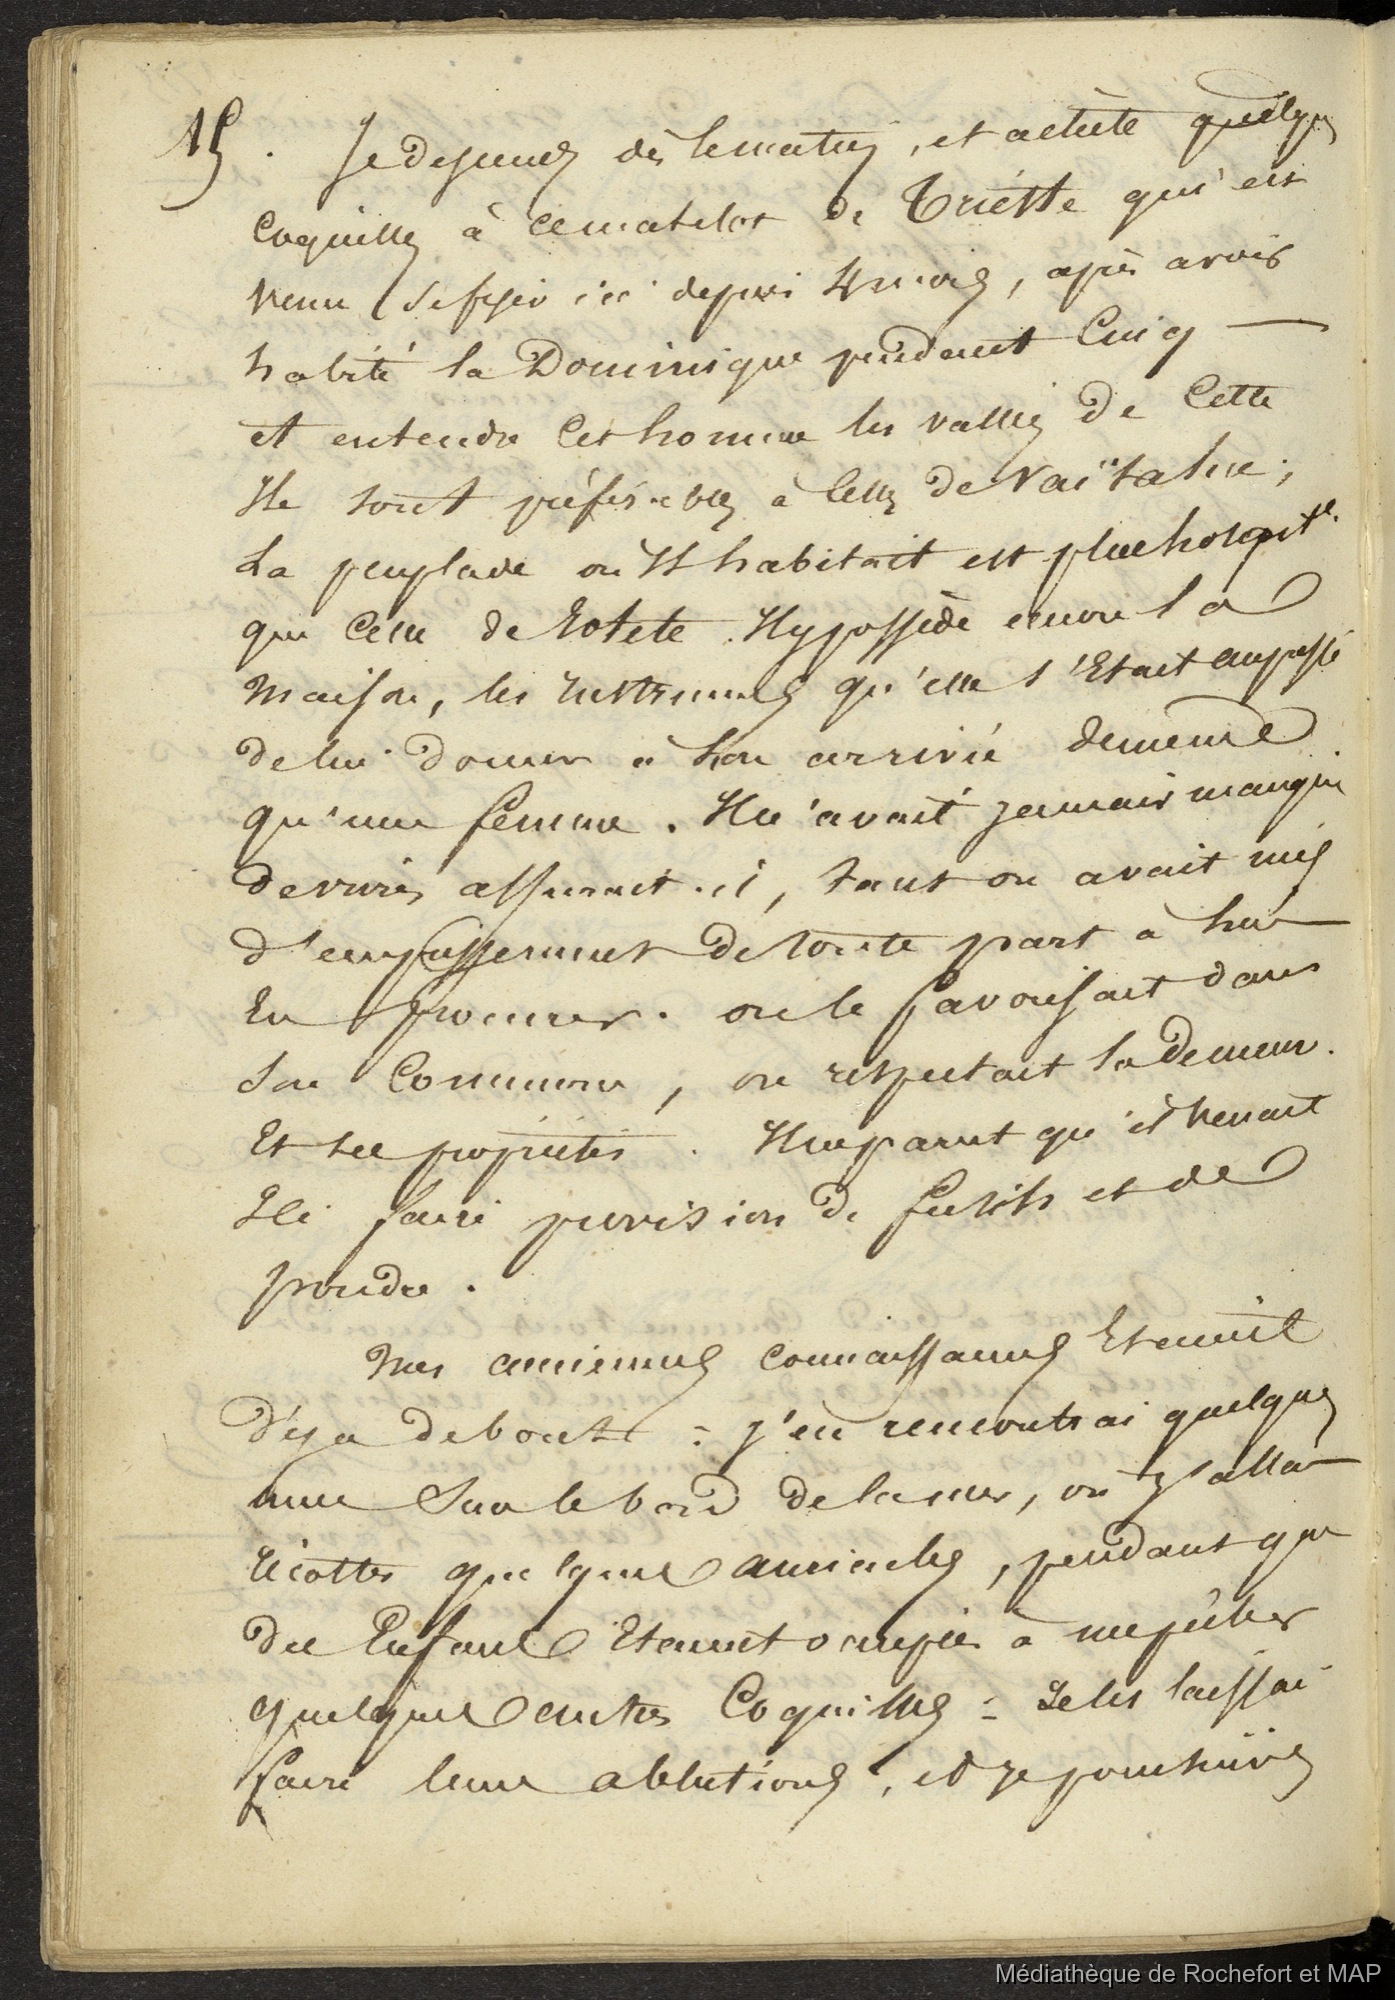 15. Je descends dès le matin, et achète quelques
coquilles à ce matelot de Trieste qui est
venu se fixer ici depuis 4 mois, après avoir
habité la Dominique pendant Cinq —
et entendre Cet homme les vallées de Cette
Ile sont préférables à Celles de Vaïtahue;
La peuplade où Il habitait est plus hospit.e
que Celle de Totete. Il y possède encore la
Maison, les Instruments qu'elle s'Etait empressé
de lui donner à son arrivée de meme
qu'une femme. Il n'avait jamais manqué
de vivres assurait-il, tant on avait mis
d'empressement de toute part à lui
En procurer. on le favorisait dans
son Commerce, on respectait sa demeure.
Et ses propriétés. Il me parut qu'il venait
Ici faire provision de fusils et de
poudre.
Mes anciennes connaissances Etaient
déja debout : j'en rencontrai quelques
unes sur le bord de la mer, où j'allai
récolter quelques, pendant que
des Enfants Etaient occupés à me pêcher
quelques autres Coquilles : Je les laissai
faire leurs ablutions, et je poursuivis
Médiathèque de Rochefort et MAP